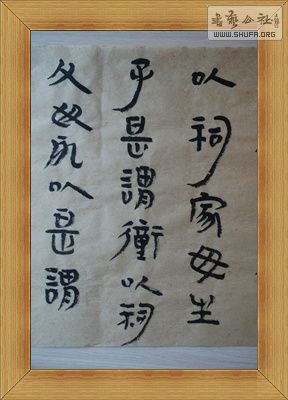 書藝公社
WWW.SHUFA.ORG
以祠家毋生
子是謂衝以祠
父母以是謂